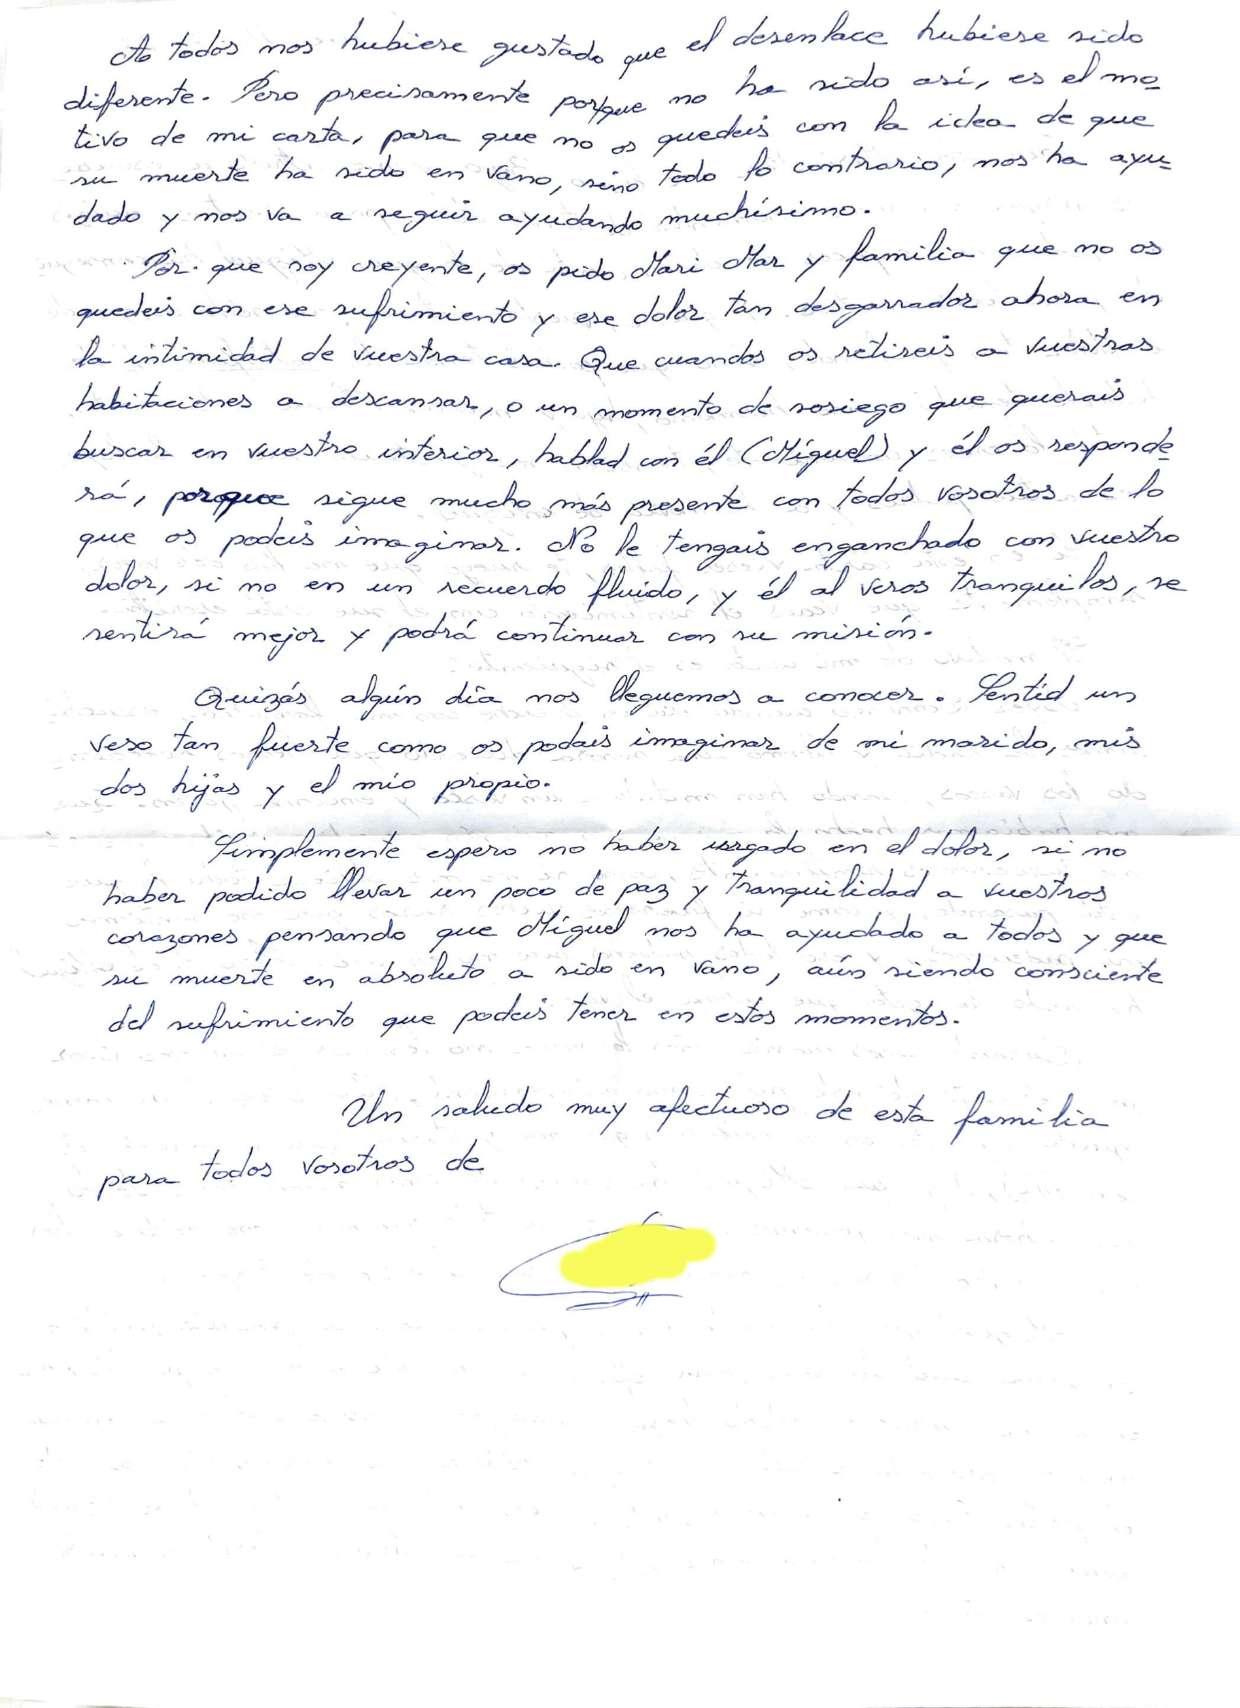 A todos nos hubiese gustado que el desenlace hubiese sido
diferente. Pero precisamente porque no ha sido así, es el mo-
tivo de mi carta, para que no os quedeis con la idea de que
su muerte ha sido en vano, sino todo lo contrario, nos ha ayu-
dado y nos va a seguir ayudando muchísimo.
Por que soy creyente, os pido Mari Mar y familia que no os
quedeis con ese sufrimiento y ese dolor tan desgarrador ahora en
la intimidad de vuestra casa. Que cuandos os retireis a vuestras
habitaciones a descansar, o un momento de sosiego que querais
buscar en vuestro interior, hablad con él (Míguel) y él os responde-
rá, porque sigue mucho más presente con todos vosotros de lo
que os podeis imaginar. No le tengais enganchado con vuestro
dolor, si no en un recuerdo fluído, y él al veros tranquilos, se
sentirá mejor y podrá continuar con su misión.
Quizás algún día nos lleguemos a conocer. Sentid un
veso tan fuerte como os podais imaginar de mi marido, mis
dos hijas y el mío propio.
Simplemente espero no haber urgado en el dolor, si no
haber podido llevar un poco de paz y tranquilidad a vuestros
corazones pensando que Míguel nos ha ayudado a todos y que
su muerte en absoluto a sido en vano, aún siendo consciente
del sufrimiento que podeis tener en estos momentos.
Un saludo muy afectuoso de esta familia
para todos vosotros de